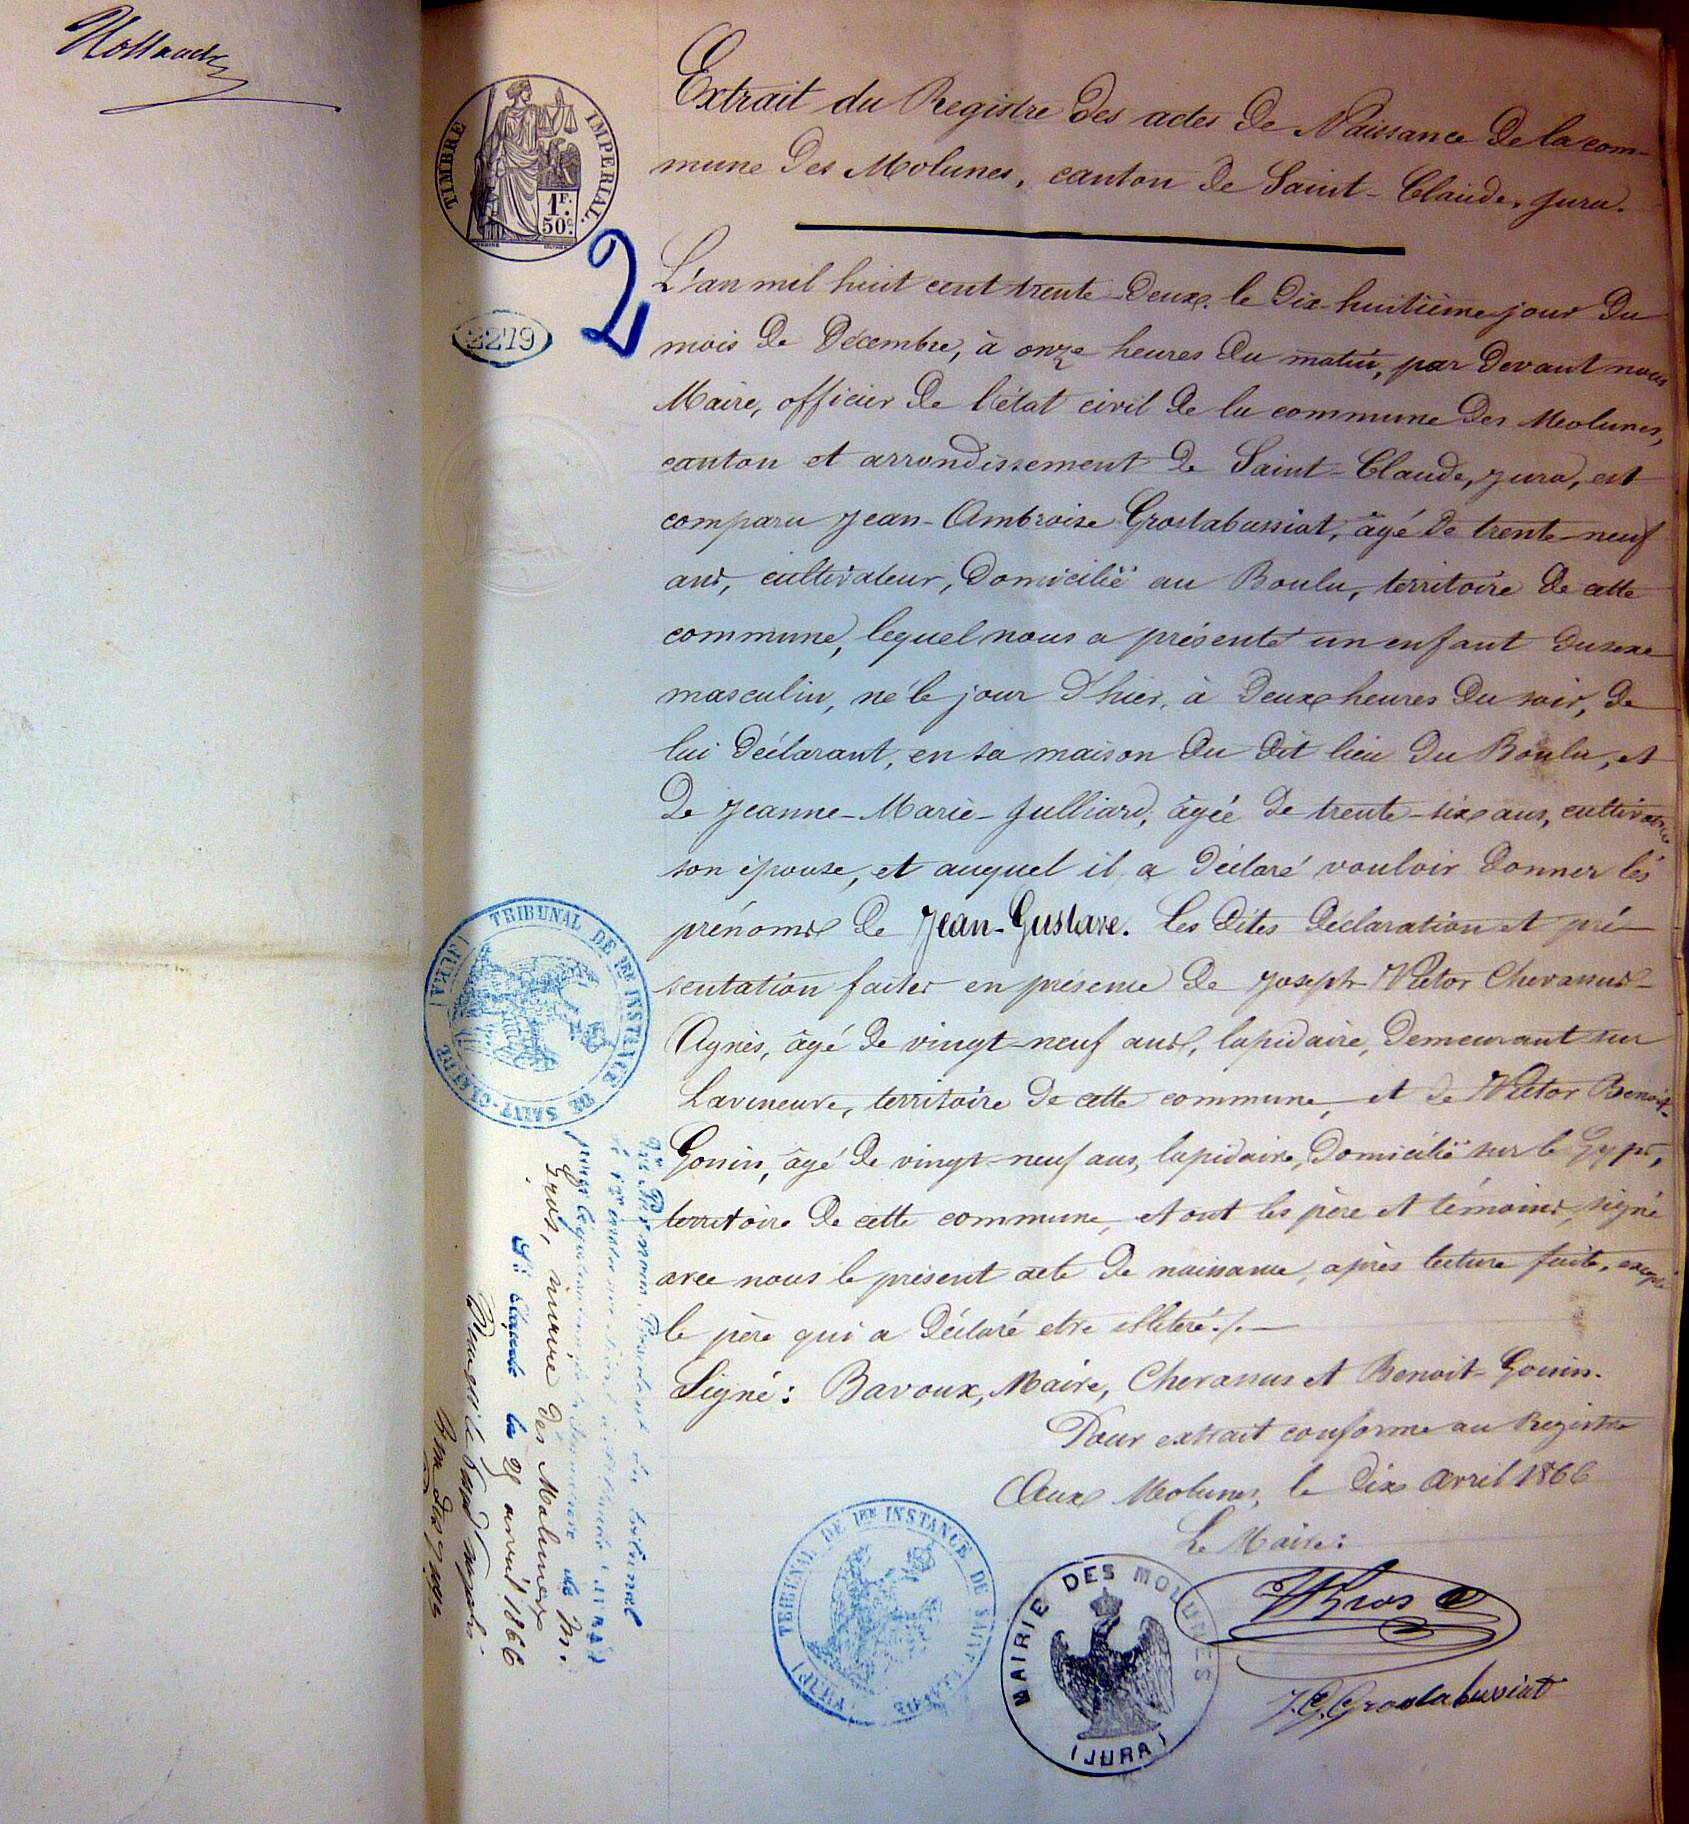 TIMBRE IMPERIAL.
1F.
50c.
2
2279
Extrait du Registre des actes de Naissance de la com-
mune des Molunes, canton de Saint-Claude, Jura.
L'an mil huit cent trente-deux, le dix-huitième jour du
mois de Décembre, à onze heures du matin, par devant nous
Maire, officier de l'état civil de la commune des Molunes,
canton et arrondissement de Saint-Claude, Jura, est
comparu Jean-Ambroise Grostabussiat, âgé de trente-neuf
ans, cultivateur, domicilié au Boulu, territoire de cette
commune, lequel nous a présenté un enfant du sexe
masculin, né le jour d'hier, à deux heures du soir, de
lui déclarant, en sa maison du dit lieu du Boulu, et
de Jeanne-Marie-Julliard, âgée de trente-six ans, cultivatrice
son épouse, et auquel il a déclaré vouloir donner les
prénoms de Jean-Gustave. Les dites déclaration et pré-
sentation faites en présence de Joseph-Victor Chevassus-
Agnès, âgé de vingt-neuf ans, lapidaire, demeurant sur
Laveneuve, territoire de cette commune, et de Victor Benoit-
Gonin, âgé de vingt-neuf ans, lapidaire, domicilié sur le Gyps,
territoire de cette commune, et ont les père et témoins, signé
avec nous le présent acte de naissance, après lecture faite, excepté
le père qui a déclaré etre illiteré./.
Signé: Bavoux, Maire, Chevassus et Benoit-Gonin.
Pour extrait conforme au Registre
Aux Molunes, le dix avril 1866
Le Maire:
Gros
J.G. Grostabussiat
TRIBUNAL DE 1RE INSTANCE DE SAINT-CLAUDE (JURA)
TRIBUNAL DE 1RE INSTANCE DE SAINT-CLAUDE (JURA)
MAIRIE DES MOLUNES
(JURA)
Président du tribunal
de la signature de M.
Gros, maire des Molunes
St Claude le 28 avril 1866